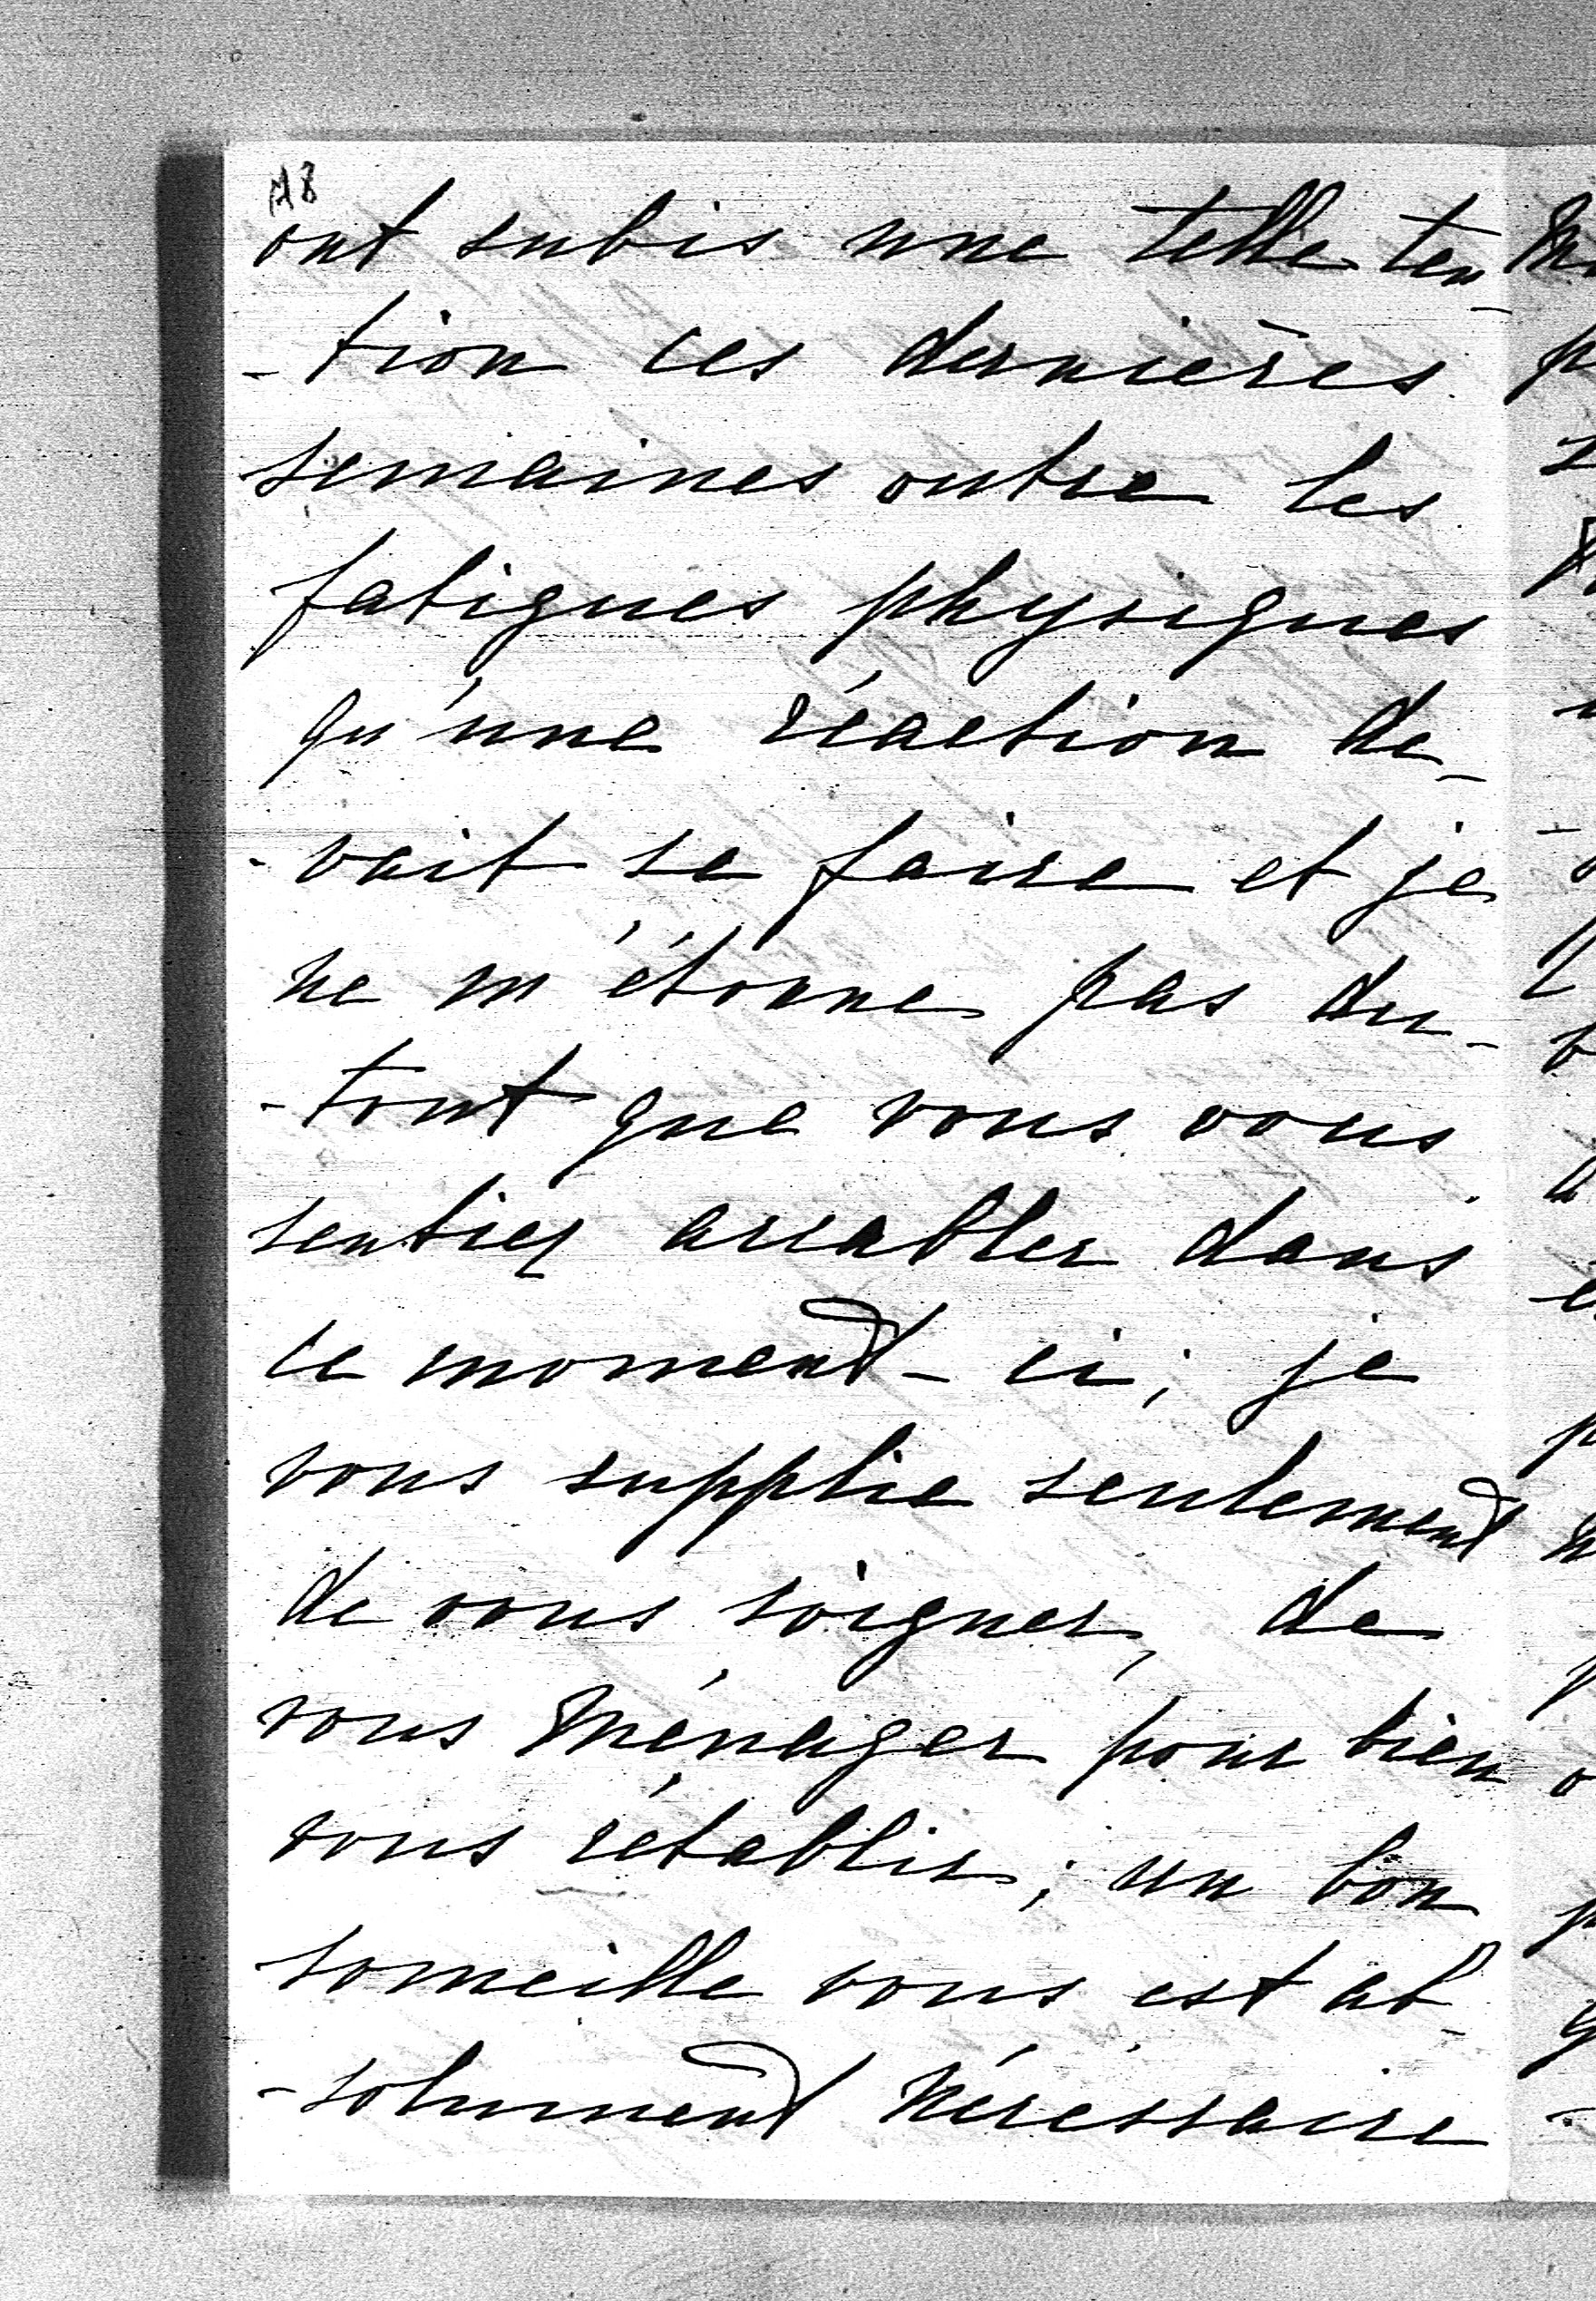 ont subis une telle ten-
-tion ces dernières
semaines outre les
fatigues physiques
qu'une réaction de-
-vait se faire et je
ne m'étonne pas du-
-tout que vous vous
sentiez accabler dans
ce moment-ci; je
vous supplie seulement
de vous soigner, de
vous ménager pour bien
vous rétablir; un bon
someille vous est ab-
-solument nécessaire